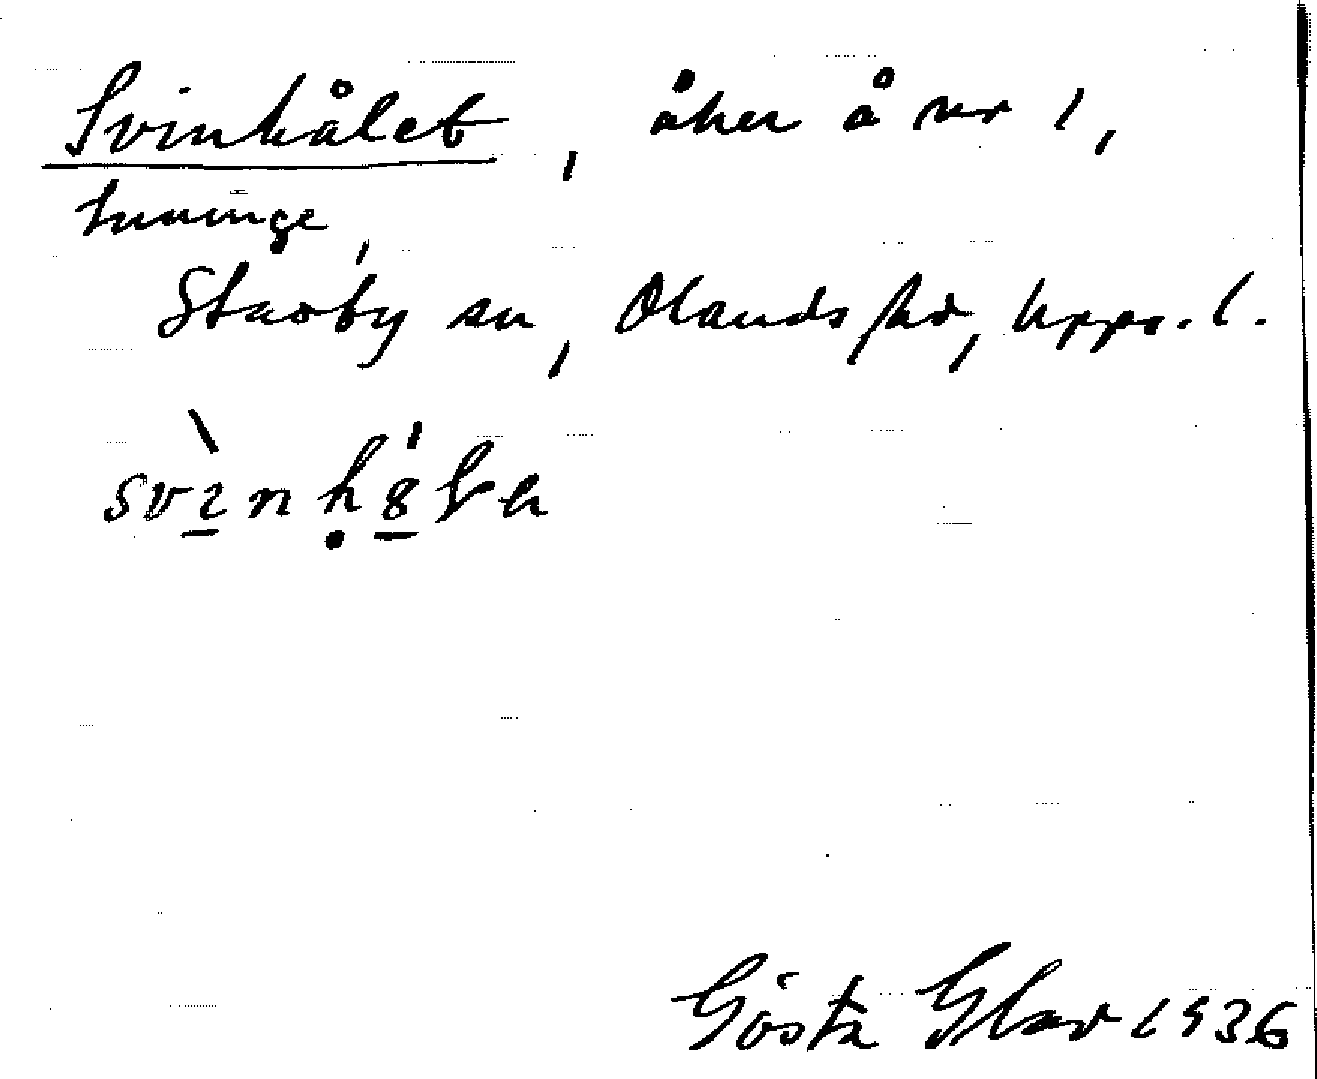 Svinhålet, åker å nr 1,
Tuvinge,
Stavby sn, Olands hd, Upps. l.
Gösta Glav 1936